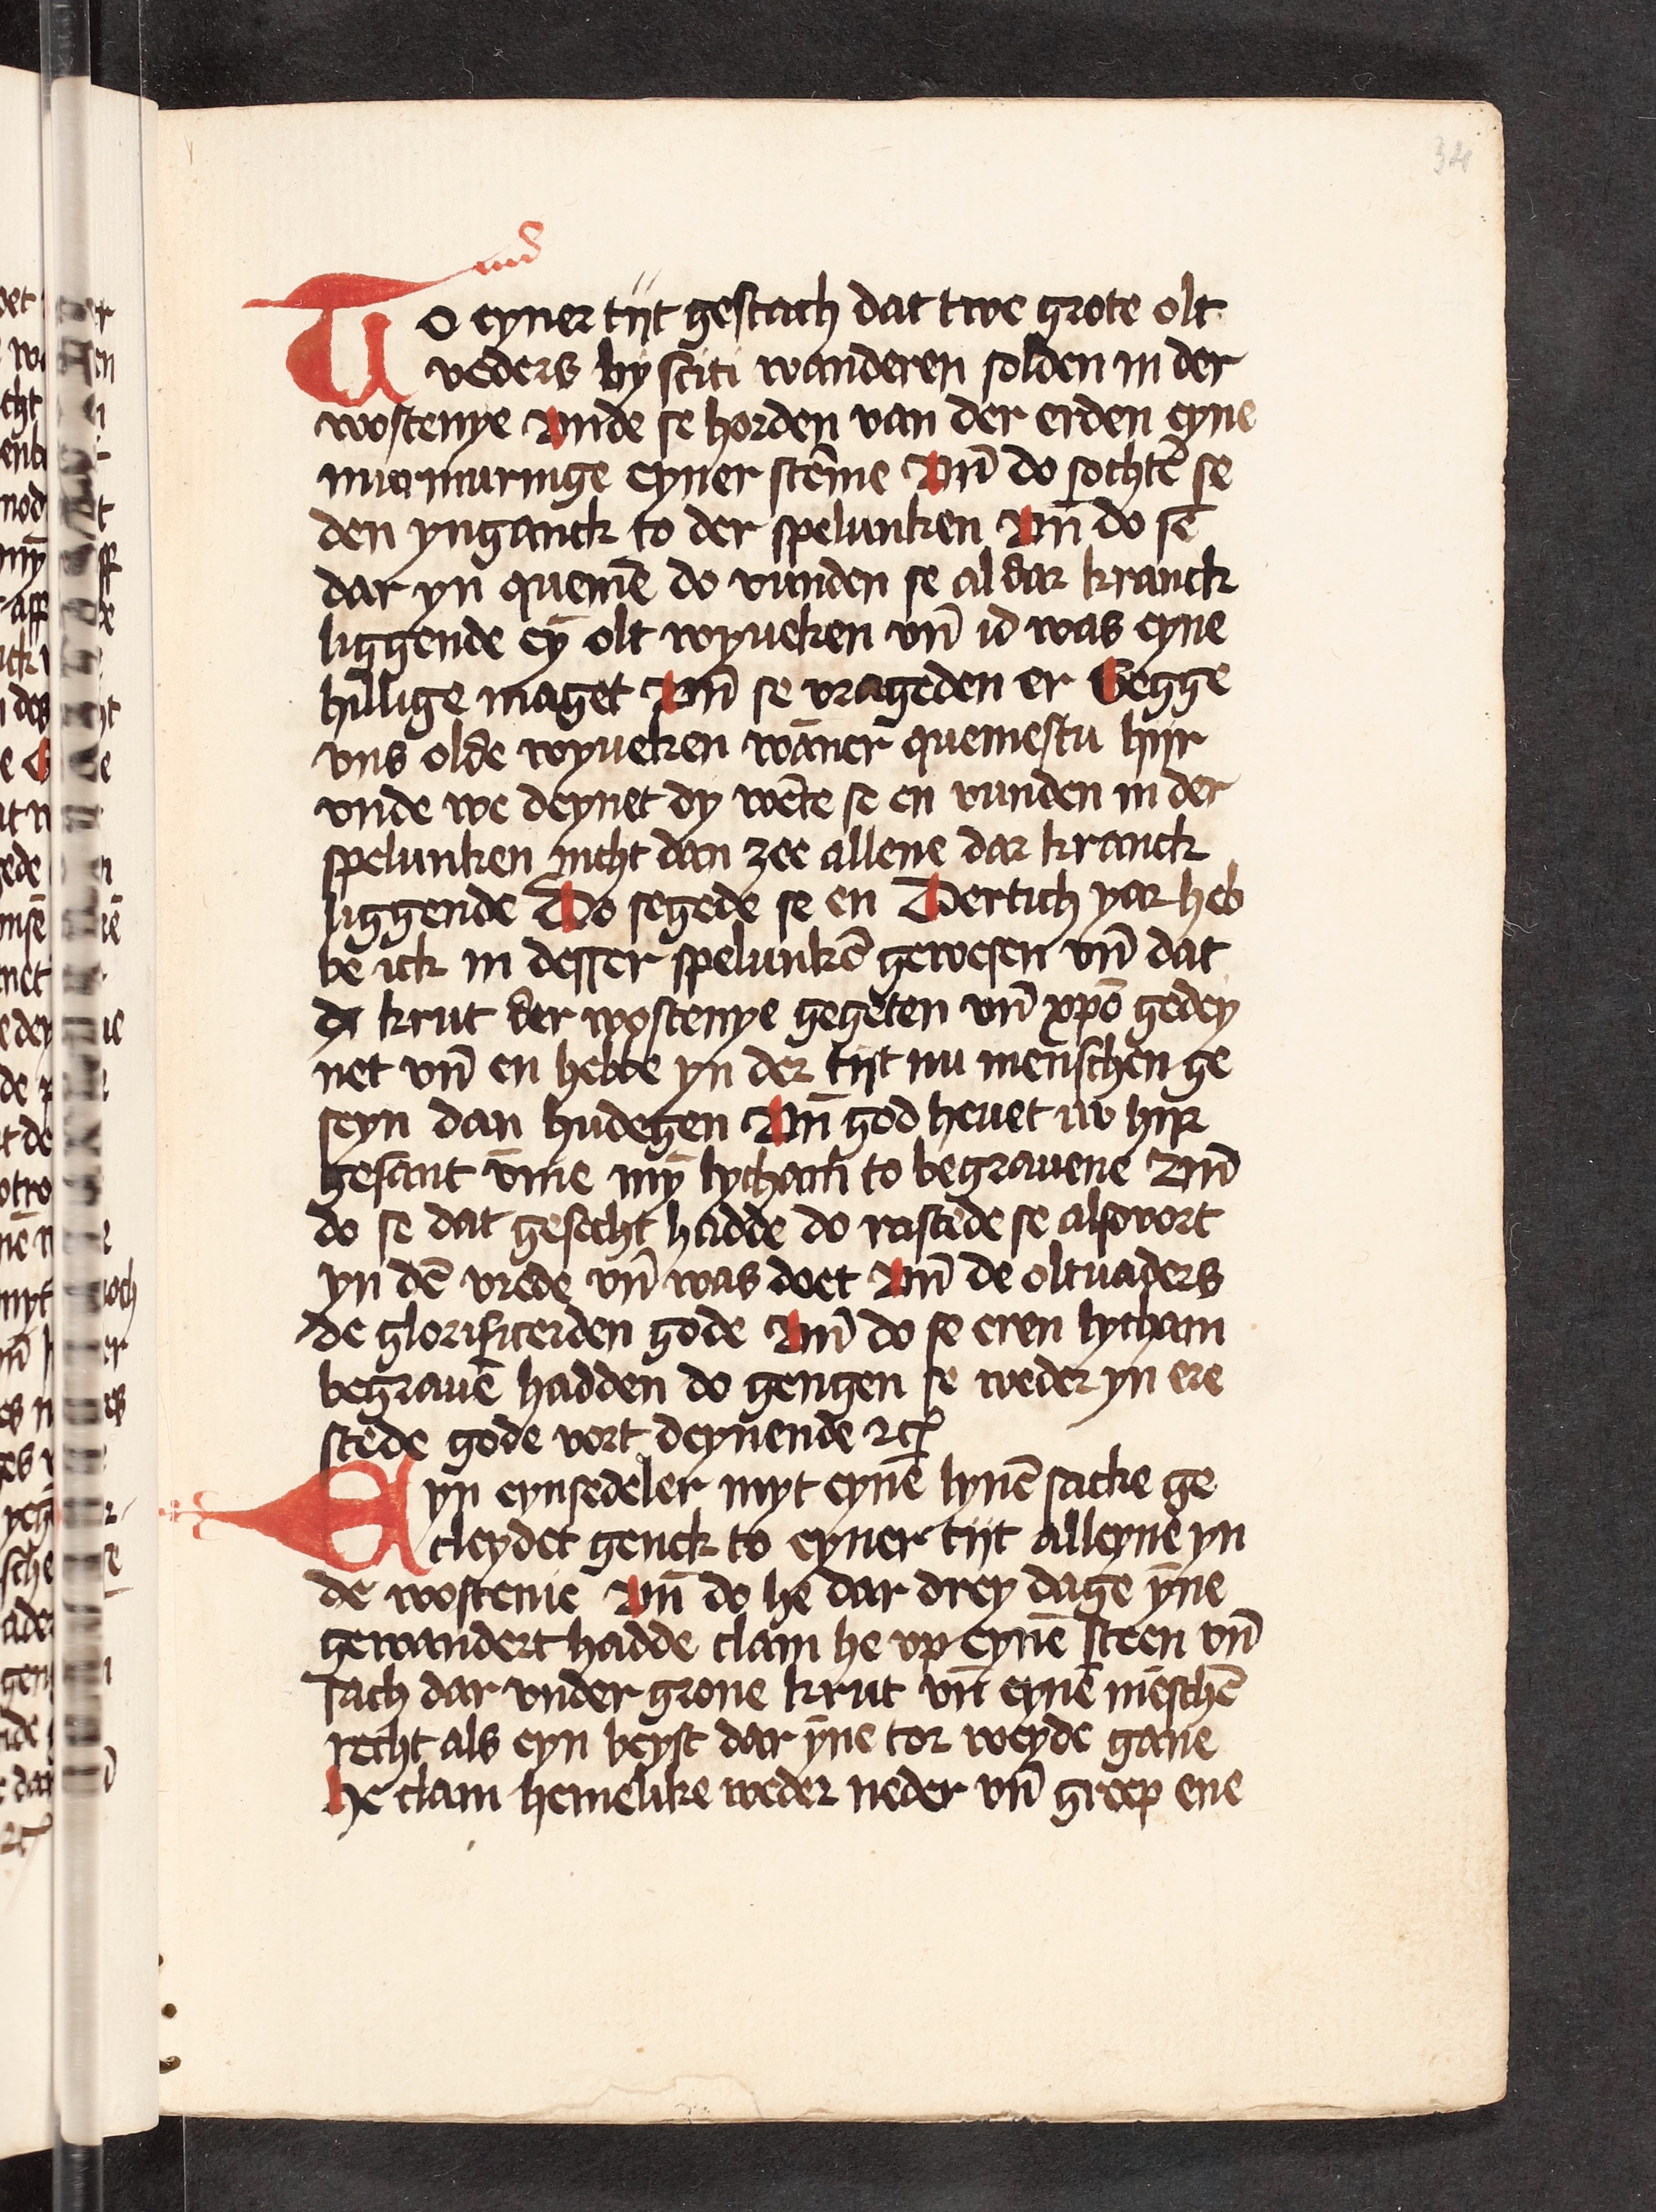 34
To eyner tijt geschach dat twe grote olt
veders by sciti wanderen solden in der
wostenye Unde se horden van der erden eyne
murmuringe eyner stēme Vn̄ do sochtē se
den ynganck to der spelunken Vn̄ do se
dar yn quemē do vunden se al dar kranck
liggende eȳ olt wyueken vn̄ id was eyne
hillige maget Vn̄ se vrageden er Segge
vns olde wyueken wāner quemestu hijr
vnde we deynet dy wēte se en vunden in der
spelunken nicht dan zee allene dar kranck
liggende Do segede se en Dertich yar heb
be ick in desser spelunkē gewesen vn̄ dat
krut der wostenye gegeten vn̄ xp̄o gedey
net vn̄ en hebbe yn der tijt nu menschen ge
seyn dan hudegen Vn̄ god heuet iw hijr
gesant v̄me mȳ lycham to begrauene Vn̄
do se dat gesecht hadde do rastede se alsovort
yn dē vrede vn̄ was doet Vn̄ de oltuaders
de glorificerden gode Vn̄ do se eren lycham
begrauē hadden do gengen se weder yn ere
stede gode vort deynende ⁊cꝭ
Eyn eynsedeler myt eynē lynē sacke ge
cleydet genck to eyner tijt alleyne yn
de wostenie Vn̄ do he dar drey dage ȳne
gewandert hadde clam he vp eynē steen vn̄
sach dar vnder grone krut vn̄ eynē mēschē
recht als eyn beyst dar ȳne tor weyde gane
He clam hemelike weder neder vn̄ greep ene